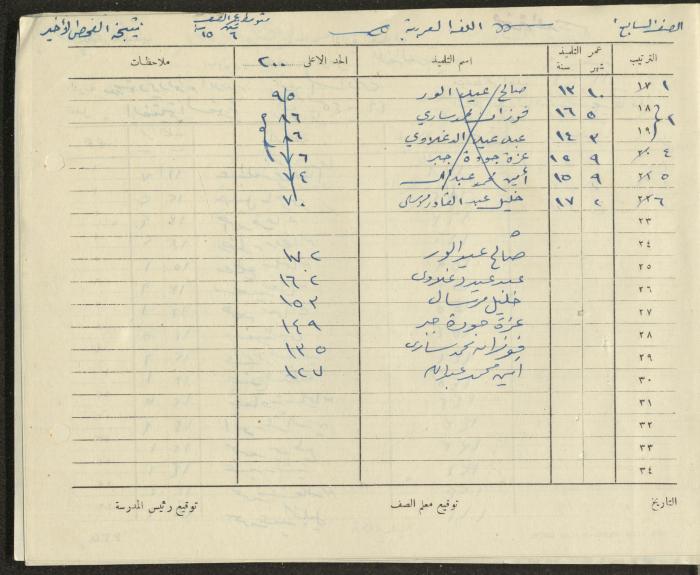 الصف السابع اللغة العربية متوسط عمر الصف ١٥ ٦ نتيجة الفحص الأخير
الترتيب عمر التلميذ شهر سنة اسم التلميذ الحد الاعلى ٢٠٠ ملاحظات
١٧ ١ ١٠ ١٣ صالح عبد الور ٩٥
١٨ ٢ ٥ ١٦ فوزان محمد ساري ٨٦
١٩ ٣ ١٤ عبد عيد الدغلاوي ٨٦
٢٠ ٤ ٩ ١٥ عزة جودة جبر ٧٦
٥ ٩ ١٥ أمين محمد عبدالله ٧٤
٦ ٢ ١٧ خليل عبد القادر مرسال ٧٠
٢٣
٢٤
صالح عبد الور ١٧٢
٢٥
عبد عيد دغلاوي ١٦٢
٢٦
خليل مرسال ١٥٣
٢٧
عزة جودة جبر ١٤٩
٢٨
فوزان محمد ساري ١٣٥
٢٩
أمين محمد عبدالله ١٢٧
٣٠
٣١
٣٢
٣٣
٣٤
التاريخ توقيع معلم الصف توقيع رئيس المدرسة